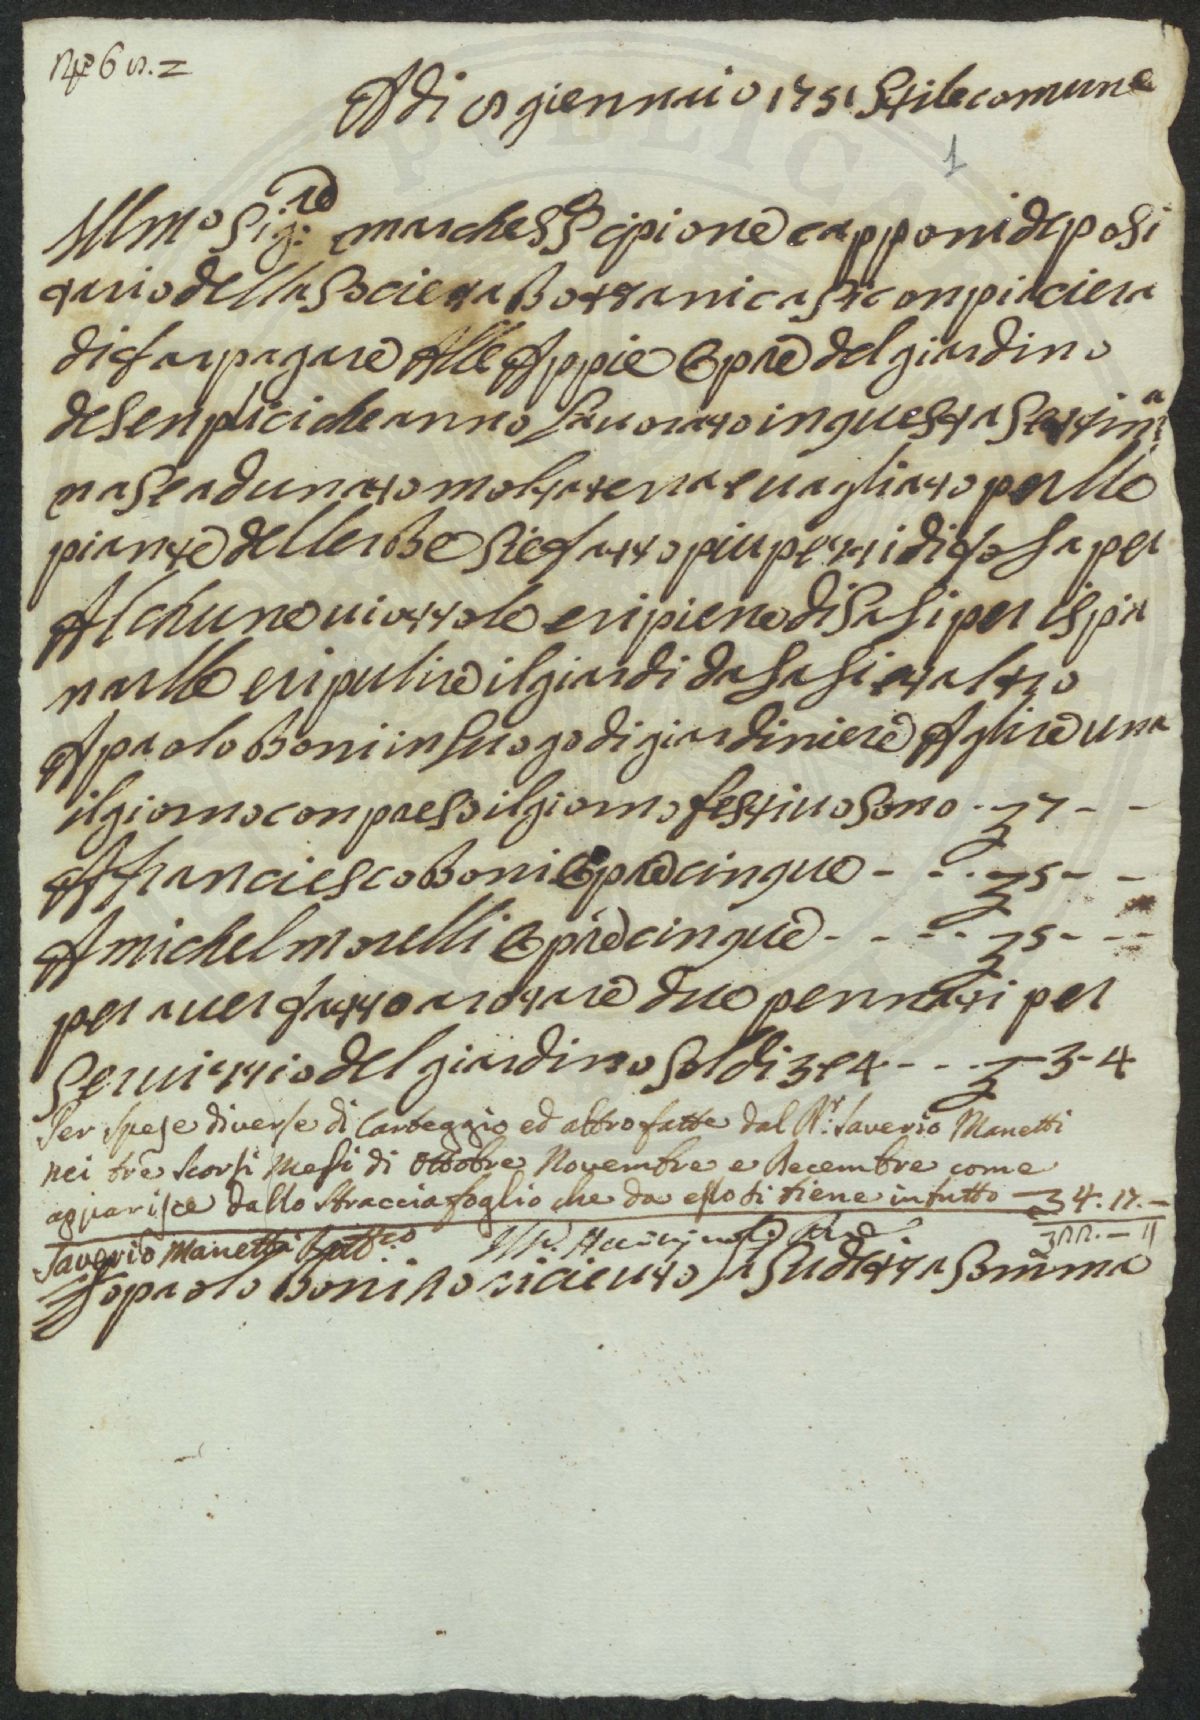 Adi 2 giennaio 1751 Stile comune
1
Ill.mo Sig.re marchese Scipione capponi deposi
tario della Societa Bottanica sic conpiaciera
di far pagare Alle Appie Opre del giardino
de senplici che anno lauorato in questa settim.a
na se adunato molta tera e uagliato per lle
piante dell erbe sie fatto piu pezzi di fosa per
Alchune uiottole e ripiene di sasi per ispia
narlle e ripulire il giardi da sasi et altro
A paolo Boni in luogo di giardiniere A lire una
il giorno conpreso il giorno festiuo sono - £ 7 - -
A franciesco Boni Opre cinque - - - £ 5 - -
A michel morelli Opre cinque - - - - £ 5 - - -
per auer fatto arotare due pennati per
seruizzio del giardino soldi 3 e 4 - - - £ - 3 - 4
Per spese diverse di Carteggio ed altro fatte dal D.r Saverio Manetti
nei tre scorsi Mesi di Ottobre Novembre e Decembre come
apparisce dallo stracciafoglio che da esso si tiene in tutto - £ 4. 17. -
Saverio Manetti
Io paolo Boni o riceuto la sudetta somma